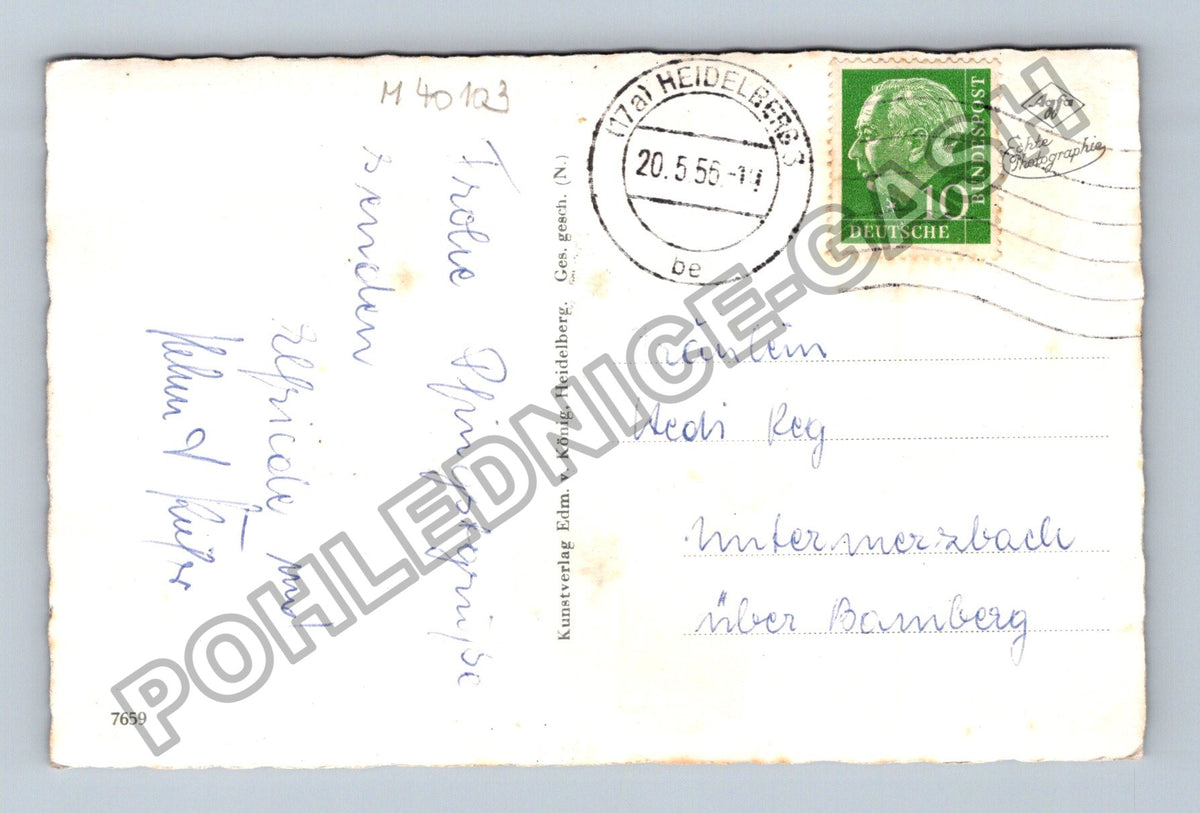 M 40103
Frohe Pfingstgrüße
senden
Elfriede und
(17a) HEIDELBERG 3
20.5.56.
be
BUNDESPOST
10
DEUTSCHE
Agfa
Echte
Photographie
Fräulein
Hedi Reg
Untermerzbach
über Bamberg
Kunstverlag Edm. v. König, Heidelberg. Ges. gesch. (N.)
7659
POHLEDNICE-GASH